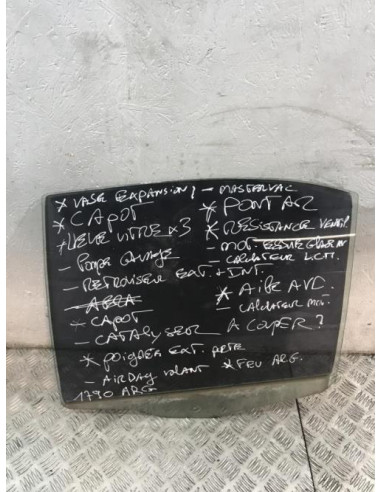 * VASE EXPANSION / - MASTERVAC
* CAPOT * PONT AR
+ LEVE VITRE x3 * RESISTANCE VENTIL
- POMPE - MOT. ESSUIE GLACE AV
- RETROVISEUR EXT. + INT. - CALCULATEUR
- CAPOT * AILE AVD.
- CATALYSEUR A COUPER? - CALCULATEUR MOT.
* POIGNEE EXT. PETE
- AIRBAG VOLANT * FEU ARG.
1790 ARG